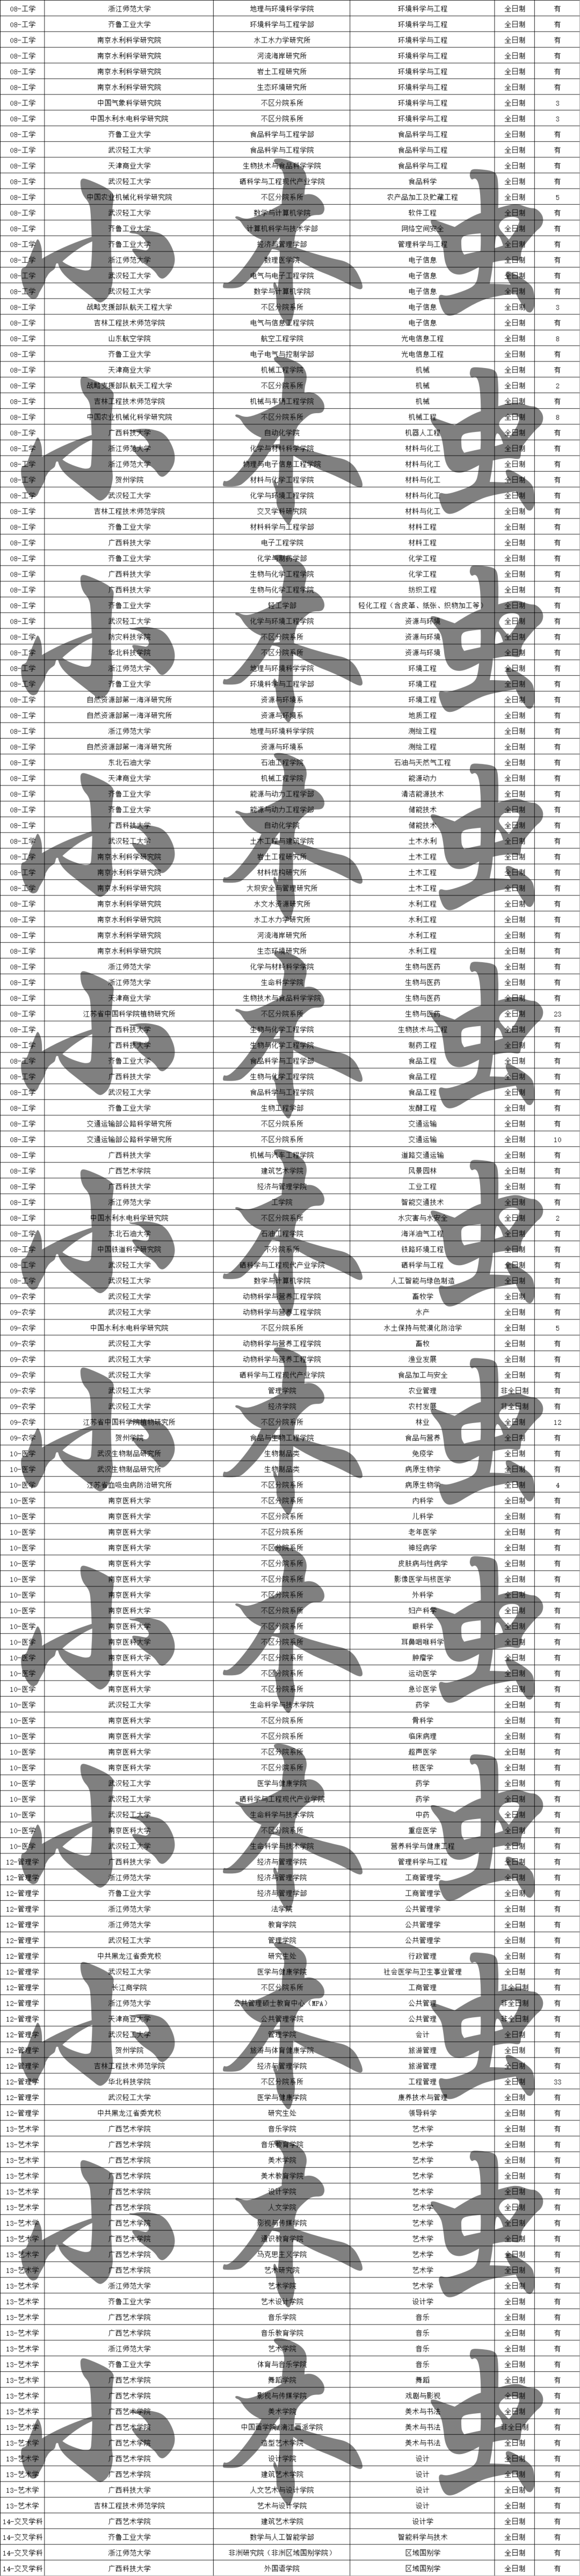 08-工学 浙江师范大学 地理与环境科学学院 环境科学与工程 全日制 有
08-工学 齐鲁工业大学 环境科学与工程学部 环境科学与工程 全日制 有
08-工学 南京水利科学研究院 水工水力学研究所 环境科学与工程 全日制 有
08-工学 南京水利科学研究院 河流海岸研究所 环境科学与工程 全日制 有
08-工学 南京水利科学研究院 岩土工程研究所 环境科学与工程 全日制 有
08-工学 南京水利科学研究院 生态环境研究所 环境科学与工程 全日制 有
08-工学 中国气象科学研究院 不区分院系所 环境科学与工程 全日制 3
08-工学 中国水利水电科学研究院 不区分院系所 环境科学与工程 全日制 3
08-工学 齐鲁工业大学 食品科学与工程学部 食品科学与工程 全日制 有
08-工学 武汉轻工大学 食品科学与工程学院 食品科学与工程 全日制 有
08-工学 天津商业大学 生物技术与食品科学学院 食品科学与工程 全日制 有
08-工学 武汉轻工大学 硒科学与工程现代产业学院 食品科学 全日制 有
08-工学 中国农业机械化科学研究院 不区分院系所 农产品加工及贮藏工程 全日制 5
08-工学 武汉轻工大学 数学与计算机学院 软件工程 全日制 有
08-工学 齐鲁工业大学 计算机科学与技术学部 网络空间安全 全日制 有
08-工学 齐鲁工业大学 经济与管理学部 管理科学与工程 全日制 有
08-工学 浙江师范大学 数理医学院 电子信息 全日制 有
08-工学 武汉轻工大学 电气与电子工程学院 电子信息 全日制 有
08-工学 武汉轻工大学 数学与计算机学院 电子信息 全日制 有
08-工学 战略支援部队航天工程大学 不区分院系所 电子信息 全日制 3
08-工学 吉林工程技术师范学院 电气与信息工程学院 电子信息 全日制 有
08-工学 山东航空学院 航空工程学院 光电信息工程 全日制 8
08-工学 齐鲁工业大学 电子电气与控制学部 光电信息工程 全日制 有
08-工学 天津商业大学 机械工程学院 机械 全日制 有
08-工学 战略支援部队航天工程大学 不区分院系所 机械 全日制 2
08-工学 吉林工程技术师范学院 机械与车辆工程学院 机械 全日制 有
08-工学 中国农业机械化科学研究院 不区分院系所 机械工程 全日制 8
08-工学 广西科技大学 自动化学院 机器人工程 全日制 有
08-工学 浙江师范大学 化学与材料科学学院 材料与化工 全日制 有
08-工学 浙江师范大学 物理与电子信息工程学院 材料与化工 全日制 有
08-工学 贺州学院 材料与化学工程学院 材料与化工 全日制 有
08-工学 武汉轻工大学 化学与环境工程学院 材料与化工 全日制 有
08-工学 吉林工程技术师范学院 交叉学科研究院 材料与化工 全日制 有
08-工学 齐鲁工业大学 材料科学与工程学部 材料工程 全日制 有
08-工学 广西科技大学 电子工程学院 材料工程 全日制 有
08-工学 齐鲁工业大学 化学与制药学部 化学工程 全日制 有
08-工学 广西科技大学 生物与化学工程学院 化学工程 全日制 有
08-工学 广西科技大学 生物与化学工程学院 纺织工程 全日制 有
08-工学 齐鲁工业大学 轻工学部 轻化工程（含皮革、纸张、织物加工等） 全日制 有
08-工学 武汉轻工大学 化学与环境工程学院 资源与环境 全日制 有
08-工学 防灾科技学院 不区分院系所 资源与环境 全日制 有
08-工学 华北科技学院 不区分院系所 资源与环境 全日制 有
08-工学 浙江师范大学 地理与环境科学学院 环境工程 全日制 有
08-工学 齐鲁工业大学 环境科学与工程学部 环境工程 全日制 有
08-工学 自然资源部第一海洋研究所 资源与环境系 环境工程 全日制 有
08-工学 自然资源部第一海洋研究所 资源与环境系 地质工程 全日制 有
08-工学 浙江师范大学 地理与环境科学学院 测绘工程 全日制 有
08-工学 自然资源部第一海洋研究所 资源与环境系 测绘工程 全日制 有
08-工学 东北石油大学 石油工程学院 石油与天然气工程 全日制 有
08-工学 天津商业大学 机械工程学院 能源动力 全日制 有
08-工学 齐鲁工业大学 能源与动力工程学部 清洁能源技术 全日制 有
08-工学 齐鲁工业大学 能源与动力工程学部 储能技术 全日制 有
08-工学 广西科技大学 自动化学院 储能技术 全日制 有
08-工学 武汉轻工大学 土木工程与建筑学院 土木水利 全日制 有
08-工学 南京水利科学研究院 岩土工程研究所 土木工程 全日制 有
08-工学 南京水利科学研究院 材料结构研究所 土木工程 全日制 有
08-工学 南京水利科学研究院 大坝安全与管理研究所 土木工程 全日制 有
08-工学 南京水利科学研究院 水文水资源研究所 水利工程 全日制 有
08-工学 南京水利科学研究院 水工水力学研究所 水利工程 全日制 有
08-工学 南京水利科学研究院 河流海岸研究所 水利工程 全日制 有
08-工学 南京水利科学研究院 生态环境研究所 水利工程 全日制 有
08-工学 浙江师范大学 化学与材料科学学院 生物与医药 全日制 有
08-工学 浙江师范大学 生命科学学院 生物与医药 全日制 有
08-工学 天津商业大学 生物技术与食品科学学院 生物与医药 全日制 有
08-工学 江苏省中国科学院植物研究所 不区分院系所 生物与医药 全日制 23
08-工学 广西科技大学 生物与化学工程学院 生物技术与工程 全日制 有
08-工学 广西科技大学 生物与化学工程学院 制药工程 全日制 有
08-工学 齐鲁工业大学 食品科学与工程学部 食品工程 全日制 有
08-工学 广西科技大学 生物与化学工程学院 食品工程 全日制 有
08-工学 武汉轻工大学 食品科学与工程学院 食品工程 全日制 有
08-工学 齐鲁工业大学 生物工程学部 发酵工程 全日制 有
08-工学 交通运输部公路科学研究所 不区分院系所 交通运输 全日制 有
08-工学 交通运输部公路科学研究所 不区分院系所 交通运输 全日制 10
08-工学 广西科技大学 机械与汽车工程学院 道路交通运输 全日制 有
08-工学 广西艺术学院 建筑艺术学院 风景园林 全日制 有
08-工学 广西科技大学 经济与管理学院 工业工程 全日制 有
08-工学 浙江师范大学 工学院 智能交通技术 全日制 有
08-工学 中国水利水电科学研究院 不区分院系所 水灾害与水安全 全日制 2
08-工学 东北石油大学 石油工程学院 海洋油气工程 全日制 有
08-工学 中国铁道科学研究院 不分院系所 铁路环境工程 全日制 有
08-工学 武汉轻工大学 硒科学与工程现代产业学院 硒科学与工程 全日制 有
08-工学 武汉轻工大学 数学与计算机学院 人工智能与绿色制造 全日制 有
09-农学 武汉轻工大学 动物科学与营养工程学院 畜牧学 全日制 有
09-农学 武汉轻工大学 动物科学与营养工程学院 水产 全日制 有
09-农学 中国水利水电科学研究院 不区分院系所 水土保持与荒漠化防治学 全日制 5
09-农学 武汉轻工大学 动物科学与营养工程学院 畜牧 全日制 有
09-农学 武汉轻工大学 动物科学与营养工程学院 渔业发展 全日制 有
09-农学 武汉轻工大学 硒科学与工程现代产业学院 食品加工与安全 全日制 有
09-农学 武汉轻工大学 管理学院 农业管理 非全日制 有
09-农学 武汉轻工大学 经济学院 农村发展 非全日制 有
09-农学 江苏省中国科学院植物研究所 不区分院系所 林业 全日制 12
09-农学 贺州学院 食品与生物工程学院 食品与营养 全日制 有
10-医学 武汉生物制品研究所 生物制品类 免疫学 全日制 有
10-医学 武汉生物制品研究所 生物制品类 病原生物学 全日制 有
10-医学 江苏省血吸虫病防治研究所 不区分院系所 病原生物学 全日制 4
10-医学 南京医科大学 不区分院系所 内科学 全日制 有
10-医学 南京医科大学 不区分院系所 儿科学 全日制 有
10-医学 南京医科大学 不区分院系所 老年医学 全日制 有
10-医学 南京医科大学 不区分院系所 神经病学 全日制 有
10-医学 南京医科大学 不区分院系所 皮肤病与性病学 全日制 有
10-医学 南京医科大学 不区分院系所 影像医学与核医学 全日制 有
10-医学 南京医科大学 不区分院系所 外科学 全日制 有
10-医学 南京医科大学 不区分院系所 妇产科学 全日制 有
10-医学 南京医科大学 不区分院系所 眼科学 全日制 有
10-医学 南京医科大学 不区分院系所 耳鼻咽喉科学 全日制 有
10-医学 南京医科大学 不区分院系所 肿瘤学 全日制 有
10-医学 南京医科大学 不区分院系所 运动医学 全日制 有
10-医学 南京医科大学 不区分院系所 急诊医学 全日制 有
10-医学 武汉轻工大学 生命科学与技术学院 药学 全日制 有
10-医学 南京医科大学 不区分院系所 骨科学 全日制 有
10-医学 南京医科大学 不区分院系所 临床病理 全日制 有
10-医学 南京医科大学 不区分院系所 超声医学 全日制 有
10-医学 南京医科大学 不区分院系所 核医学 全日制 有
10-医学 武汉轻工大学 医学与健康学院 药学 全日制 有
10-医学 武汉轻工大学 硒科学与工程现代产业学院 药学 全日制 有
10-医学 武汉轻工大学 生命科学与技术学院 中药 全日制 有
10-医学 南京医科大学 不区分院系所 重症医学 全日制 有
10-医学 武汉轻工大学 生命科学与技术学院 营养科学与健康工程 全日制 有
12-管理学 广西科技大学 经济与管理学院 管理科学与工程 全日制 有
12-管理学 浙江师范大学 经济与管理学院 工商管理学 全日制 有
12-管理学 齐鲁工业大学 经济与管理学部 工商管理学 全日制 有
12-管理学 浙江师范大学 法学院 公共管理学 全日制 有
12-管理学 浙江师范大学 教育学院 公共管理学 全日制 有
12-管理学 武汉轻工大学 管理学院 公共管理学 全日制 有
12-管理学 中共黑龙江省委党校 研究生处 行政管理 全日制 有
12-管理学 武汉轻工大学 医学与健康学院 社会医学与卫生事业管理 全日制 有
12-管理学 长江商学院 不区分院系所 工商管理 非全日制 有
12-管理学 浙江师范大学 公共管理硕士教育中心（MPA） 公共管理 非全日制 有
12-管理学 天津商业大学 公共管理学院 公共管理 非全日制 有
12-管理学 武汉轻工大学 管理学院 会计 全日制 有
12-管理学 贺州学院 旅游与体育健康学院 旅游管理 全日制 有
12-管理学 吉林工程技术师范学院 经济与管理学院 旅游管理 全日制 有
12-管理学 华北科技学院 不区分院系所 工程管理 全日制 33
12-管理学 武汉轻工大学 医学与健康学院 康养技术与管理 全日制 有
12-管理学 中共黑龙江省委党校 研究生处 领导科学 全日制 有
13-艺术学 广西艺术学院 音乐学院 艺术学 全日制 有
13-艺术学 广西艺术学院 音乐教育学院 艺术学 全日制 有
13-艺术学 广西艺术学院 美术学院 艺术学 全日制 有
13-艺术学 广西艺术学院 美术教育学院 艺术学 全日制 有
13-艺术学 广西艺术学院 设计学院 艺术学 全日制 有
13-艺术学 广西艺术学院 人文学院 艺术学 全日制 有
13-艺术学 广西艺术学院 影视与传媒学院 艺术学 全日制 有
13-艺术学 广西艺术学院 通识教育学院 艺术学 全日制 有
13-艺术学 广西艺术学院 马克思主义学院 艺术学 全日制 有
13-艺术学 广西艺术学院 艺术研究院 艺术学 全日制 有
13-艺术学 浙江师范大学 艺术学院 艺术学 全日制 有
13-艺术学 齐鲁工业大学 艺术设计学院 设计学 全日制 有
13-艺术学 广西艺术学院 音乐学院 音乐 全日制 有
13-艺术学 广西艺术学院 音乐教育学院 音乐 全日制 有
13-艺术学 浙江师范大学 艺术学院 音乐 全日制 有
13-艺术学 齐鲁工业大学 体育与音乐学院 音乐 全日制 有
13-艺术学 广西艺术学院 舞蹈学院 舞蹈 全日制 有
13-艺术学 广西艺术学院 影视与传媒学院 戏剧与影视 全日制 有
13-艺术学 广西艺术学院 美术学院 美术与书法 全日制 有
13-艺术学 广西艺术学院 中国画学院/漓江画派学院 美术与书法 非全日制 有
13-艺术学 广西艺术学院 造型艺术学院 美术与书法 全日制 有
13-艺术学 广西艺术学院 设计学院 设计 全日制 有
13-艺术学 广西艺术学院 建筑艺术学院 设计 全日制 有
13-艺术学 广西科技大学 人文艺术与设计学院 设计 全日制 有
13-艺术学 吉林工程技术师范学院 艺术与设计学院 设计 全日制 有
14-交叉学科 广西艺术学院 建筑艺术学院 设计学 全日制 有
14-交叉学科 齐鲁工业大学 数学与人工智能学部 智能科学与技术 全日制 有
14-交叉学科 浙江师范大学 非洲研究院（非洲区域国别学院） 区域国别学 全日制 有
14-交叉学科 广西科技大学 外国语学院 区域国别学 全日制 有
小木虫
小木虫
小木虫
小木虫
小木虫
小木虫
小木虫
小木虫
小木虫
小木虫
小木虫
小木虫